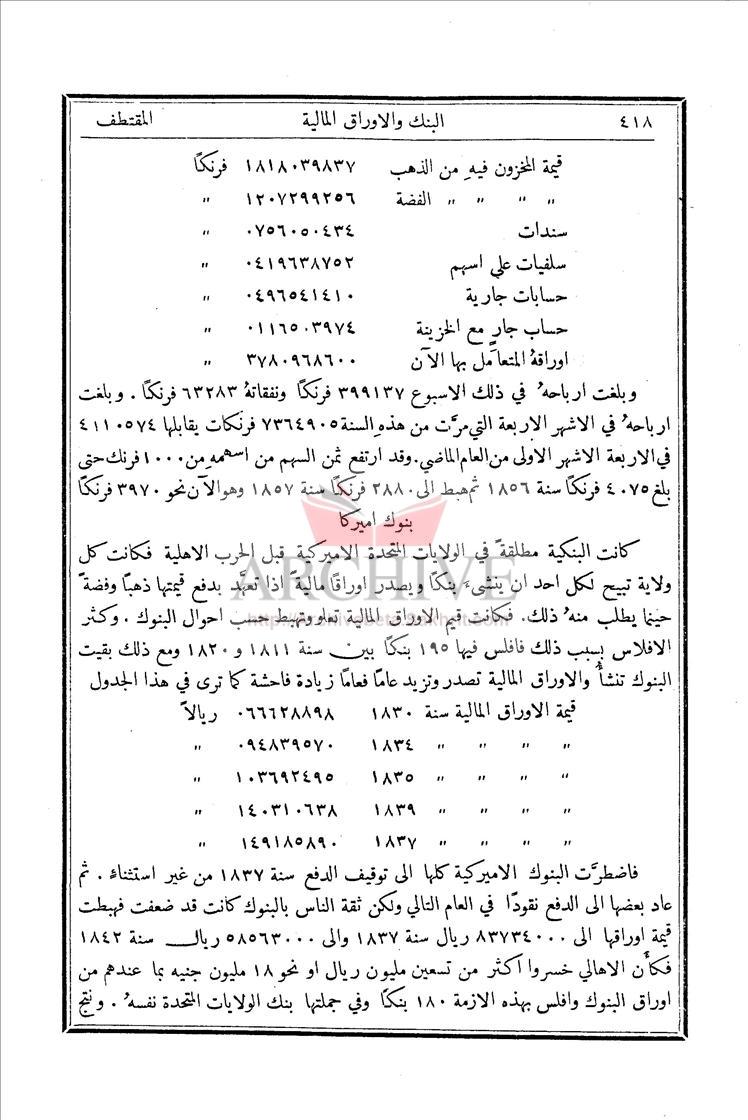 ٤١٨ البنك والاوراق المالية المقتطف
قيمة المخزون فيهِ من الذهب ١٨١٨٠٣٩٨٣٧ فرنكًا
" " " " الفضة ١٢٠٧٢٩٩٢٥٦ "
سندات ٠٧٥٦٠٥٠٤٣٤ "
سلفيات على اسهم ٠٤١٩٦٣٨٧٥٢ "
حسابات جارية ٠٤٩٦٥٤١٤١٠ "
حساب جارٍ مع الخزينة ٠١١٦٥٠٣٩٧٤ "
اوراقهُ المتعامل بها الآن ٣٧٨٠٩٦٨٦٠٠ "
وبلغت ارباحهُ في ذلك الاسبوع ٣٩٩١٣٧ فرنكًا ونفقاتهُ ٦٣٢٨٣ فرنكًا . وبلغت
ارباحهُ في الاشهر الاربعة التي مرَّت من هذهِ السنة ٧٣٦٤٩٠٥ فرنكات يقابلها ٤١١٠٥٧٤
في الاربعة الاشهر الاولى من العام الماضي . وقد ارتفع ثمن السهم من اسهمهِ من ١٠٠٠ فرنك حتى
بلغ ٤٠٧٥ فرنكًا سنة ١٨٥٦ ثم هبط الى ٢٨٨٠ فرنكًا سنة ١٨٥٧ وهو الآن نحو ٣٩٧٠ فرنكًا
بنوك اميركا
كانت البنكية مطلقةً في الولايات المتحدة الاميركية قبل الحرب الاهلية فكانت كل
ولاية تبيح لكل احد ان ينشىء بنكًا ويصدر اوراقًا مالية اذا تعهَّد بدفع قيمتها ذهبًا وفضةً
حينما يطلب منهُ ذلك . فكانت قيم الاوراق المالية تعلو وتهبط حسب احوال البنوك . وكثر
الافلاس بسبب ذلك فافلس فيها ١٩٥ بنكًا بين سنة ١٨١١ و ١٨٢٠ ومع ذلك بقيت
البنوك تنشأُ والاوراق المالية تصدر وتزيد عامًا فعامًا زيادة فاحشة كما ترى في هذا الجدول
قيمة الاوراق المالية سنة ١٨٣٠ ٠٦٦٦٢٨٨٩٨ ريالاً
" " " " ١٨٣٤ ٠٩٤٨٣٩٥٧٠ "
" " " " ١٨٣٥ ١٠٣٦٩٢٤٩٥ "
" " " " ١٨٣٩ ١٤٠٣١٠٦٣٨ "
" " " " ١٨٣٧ ١٤٩١٨٥٨٩٠ "
فاضطرَّت البنوك الاميركية كلها الى توقيف الدفع سنة ١٨٣٧ من غير استثناءٍ . ثم
عاد بعضها الى الدفع نقودًا في العام التالي ولكن ثقة الناس بالبنوك كانت قد ضعفت فهبطت
قيمة اوراقها الى ٨٣٧٣٤٠٠٠ ريال سنة ١٨٣٧ والى ٥٨٥٦٣٠٠٠ ريال سنة ١٨٤٢
فكأَن الاهالي خسروا اكثر من تسعين مليون ريال او نحو ١٨ مليون جنيه بما عندهم من
اوراق البنوك وافلس بهذه الازمة ١٨٠ بنكًا وفي جملتها بنك الولايات المتحدة نفسهُ . ونتج
ARCHIVE